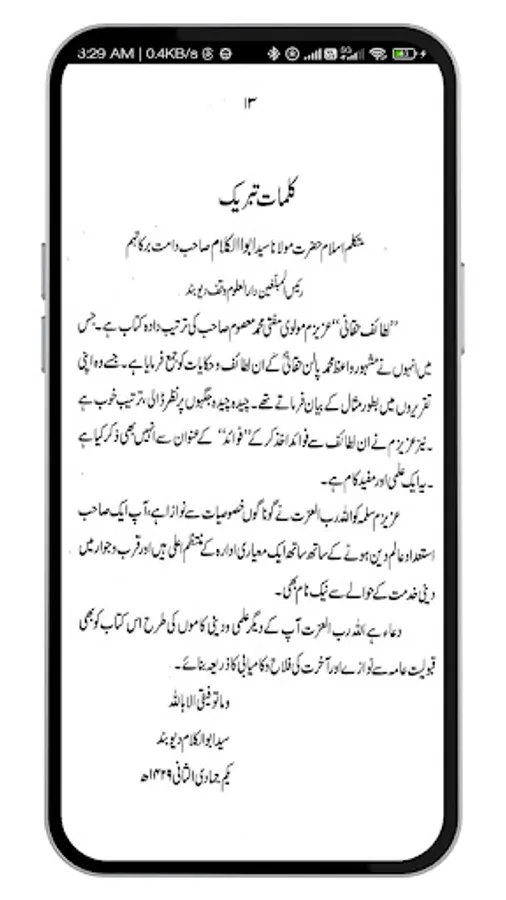 3:29 AM | 0.4KB/s
5G
۱۳
کلمات تبریک
متکلم اسلام حضرت مولانا سید ابوالکلام صاحب دامت برکاتہم
رئیس المبلغین دارالعلوم وقف دیوبند
”لطائف حقانی“ عزیزم مولوی مفتی محمد معصوم صاحب کی ترتیب دادہ کتاب ہے۔ جس
میں انہوں نے مشہور واعظ محمد پالن حقانیؒ کے ان لطائف و حکایات کو جمع فرمایا ہے۔ جسے وہ اپنی
تقریروں میں بطور مثال کے بیان فرماتے تھے۔ چیدہ چیدہ جگہوں پر نظر ڈالی، ترتیب خوب ہے
۔ نیز عزیزم نے ان لطائف سے فوائد اخذ کر کے ”فوائد“ کے عنوان سے انہیں بھی ذکر کیا ہے
۔ یہ ایک علمی اور مفید کام ہے۔
عزیزم سلمہ کو اللہ رب العزت نے گوناگوں خصوصیات سے نوازا ہے، آپ ایک صاحب
استعداد عالم دین ہونے کے ساتھ ساتھ ایک معیاری ادارہ کے منتظم اعلی ہیں اور قرب و جوار میں
دینی خدمت کے حوالے سے نیک نام بھی۔
دعاء ہے اللہ رب العزت آپ کے دیگر علمی و دینی کاموں کی طرح اس کتاب کو بھی
قبولیت عامہ سے نوازے اور آخرت کی فلاح و کامیابی کا ذریعہ بنائے۔
وما توفیقی الا باللہ
سید ابوالکلام دیوبند
یکم جمادی الثانی ۱۴۲۹ھ